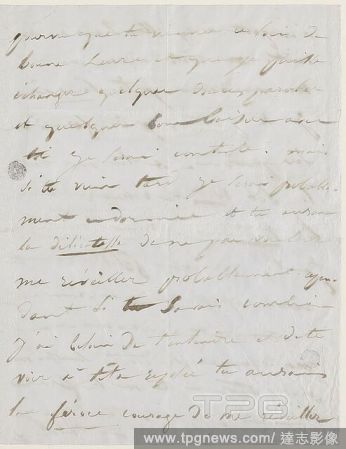 pourvu que tu viennes ce soir de
bonne heure et que je puisse
échanger quelques douces paroles
et quelques bons baisers avec
toi je serai contente. mais
si tu viens tard je serai probable-
ment endormie et tu auras
la délicatesse de ne pas
me réveiller probablement
dant si tu savais combien
j'ai besoin de t'entendre et de te
voir à tu aurais
le féroce courage de me réveiller
TPG
www.tpgnews.com / 達志影像